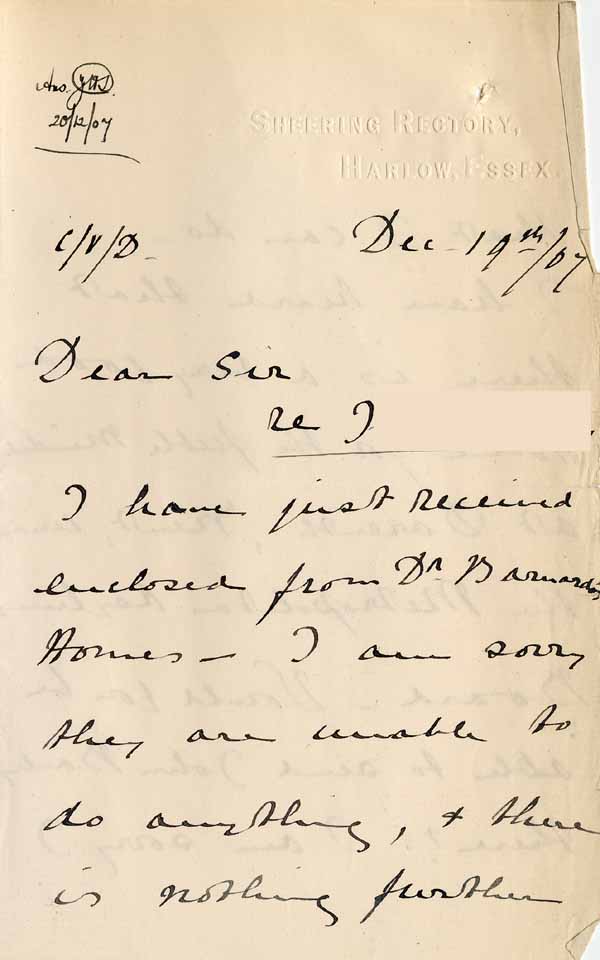 Ans. JHS.
20/12/07
SHEERING RECTORY,
HARLOW, ESSEX.
Dec 19th/07
Dear Sir
re J
I have just received
enclosed from Dr Barnardos
Homes – I am sorry
they are unable to
do anything, & there
is nothing further